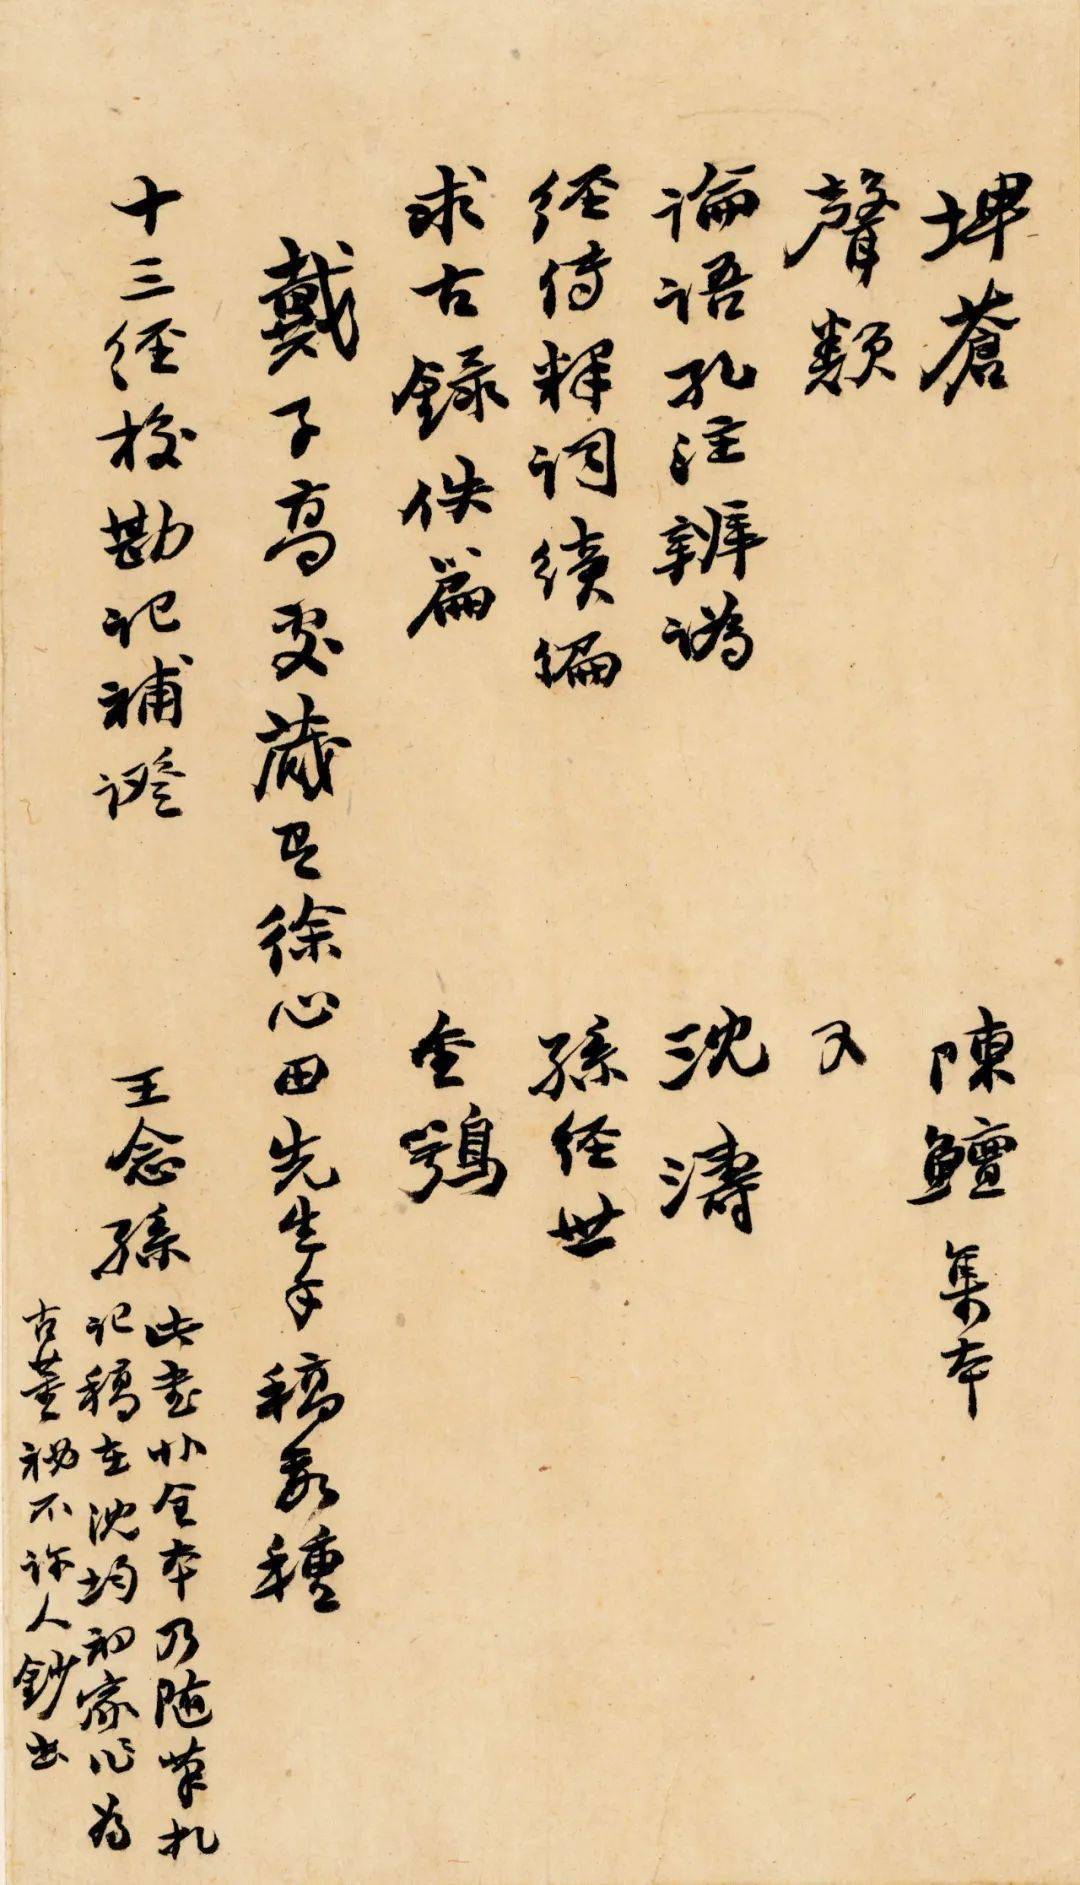 埤蒼 陳鱣集本
聲類 又
論語孔注辨譌 沈濤
經傳釋詞續編 孫經世
求古錄佚篇 金鶚
戴子高處藏有徐心田先生手稿數種
十三經校勘記補證 王念孫
此書非全本乃隨筆札
記稿在沈均初家作為
古董祕不許人鈔出